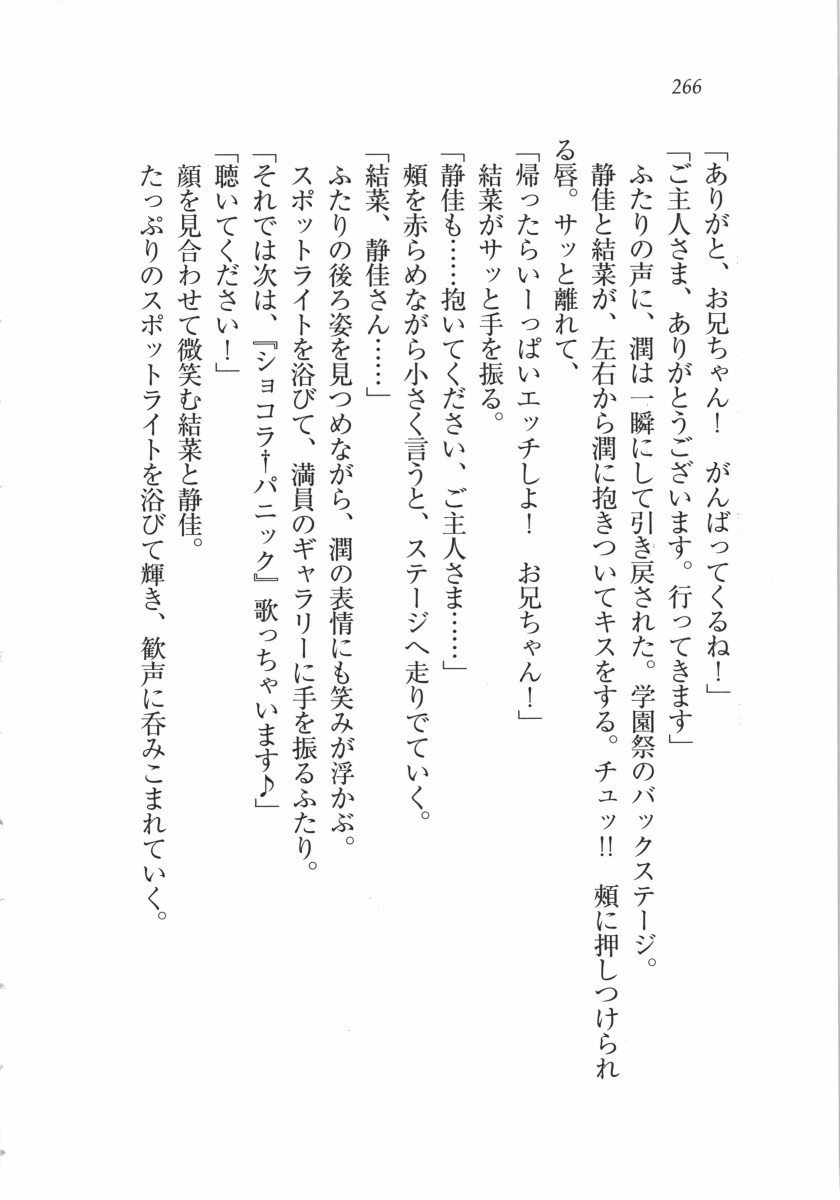 266
「ありがと、お兄ちゃん！　がんばってくるね！」
「ご主人さま、ありがとうございます。行ってきます」
　ふたりの声に、潤は一瞬にして引き戻された。学園祭のバックステージ。
　静佳と結菜が、左右から潤に抱きついてキスをする。チュッ!!　頰に押しつけられ
る唇。サッと離れて、
「帰ったらいーっぱいエッチしよ！　お兄ちゃん！」
　結菜がサッと手を振る。
「静佳も……抱いてください、ご主人さま……」
　頰を赤らめながら小さく言うと、ステージへ走りでていく。
「結菜、静佳さん……」
　ふたりの後ろ姿を見つめながら、潤の表情にも笑みが浮かぶ。
　スポットライトを浴びて、満員のギャラリーに手を振るふたり。
「それでは次は、『ショコラ†パニック』歌っちゃいます♪」
「聴いてください！」
　顔を見合わせて微笑む結菜と静佳。
　たっぷりのスポットライトを浴びて輝き、歓声に呑みこまれていく。